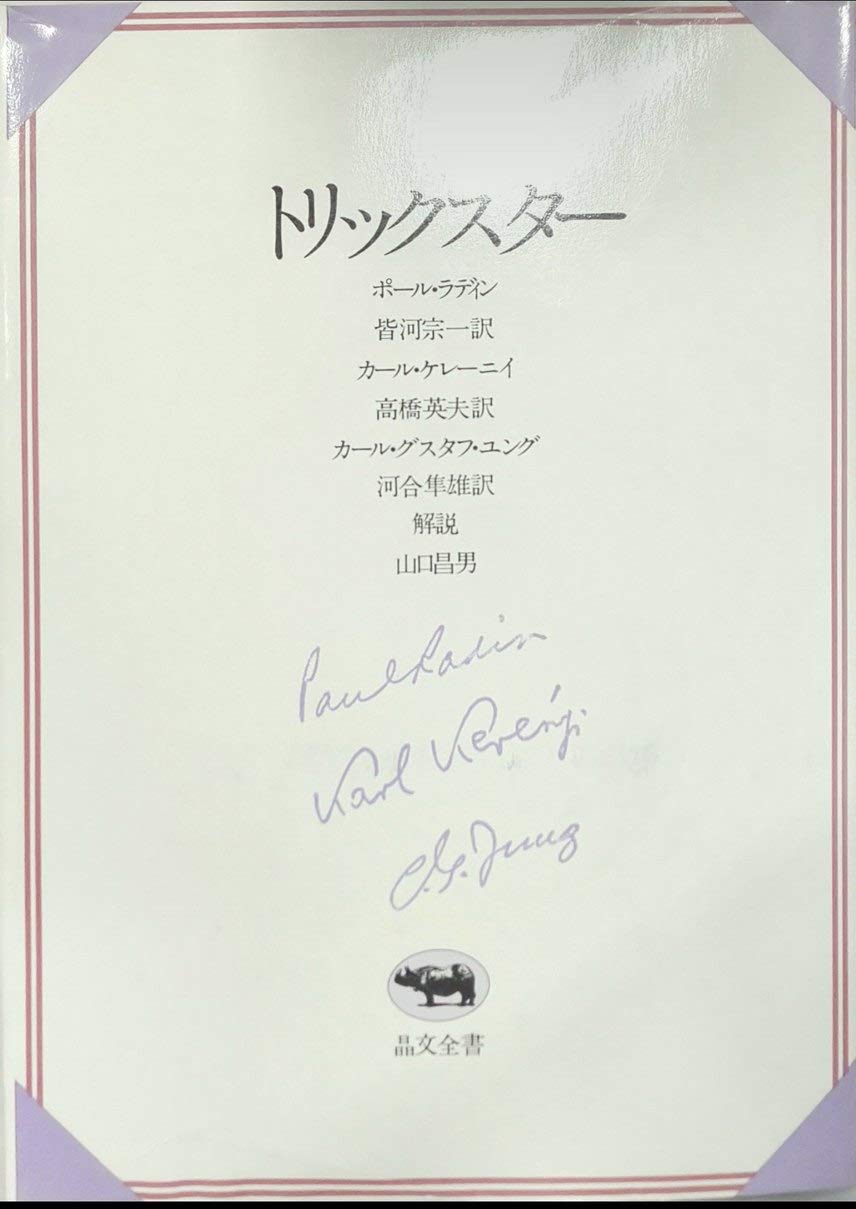 トリックスター
ポール・ラディン
皆河宗一訳
カール・ケレーニイ
高橋英夫訳
カール・グスタフ・ユング
河合隼雄訳
解説
山口昌男
Paul Radin
Karl Kerényi
C.G. Jung
晶文全書